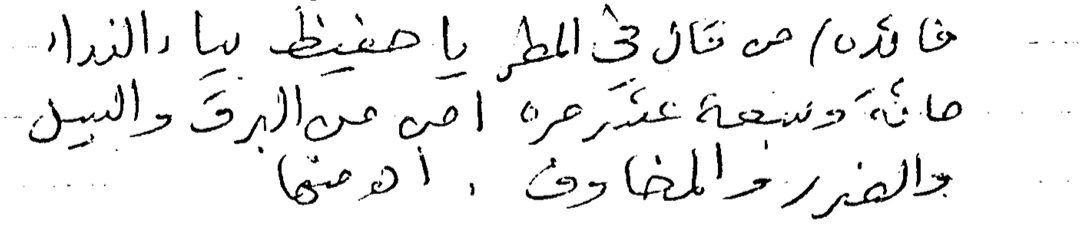 فائدة / من قال في المطر يا حفيظ بياء النداء
مائة وتسعة عشر مره امن من البرق والسيل
والضرر والمخاوف . اﻫ منها